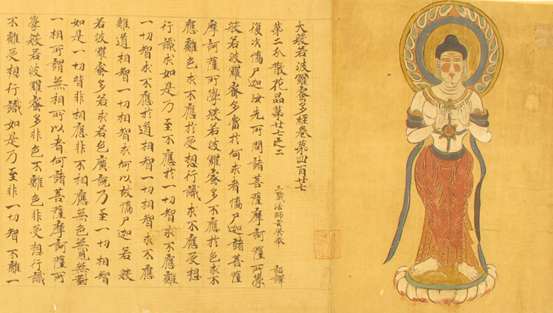 大般若波羅蜜多經卷第四百廿七
第二分散花品第廿七之二
三藏法師玄奘奉 詔譯
復次憍尸迦汝先所問諸菩薩摩訶薩所學
般若波羅蜜多當於何求者憍尸迦諸菩薩
摩訶薩所學般若波羅蜜多不應於色求不
應離色求不應於受想行識求不應離受想
行識求如是乃至不應於一切智求不應離
一切智求不應於道相智一切相智求不應
離道相智一切相智求何以故憍尸迦若般
若波羅蜜多若求若廣說乃至一切相智
如是一切皆非相應非不相應無色無見無對
一相所謂無相所以者何諸菩薩摩訶薩所
學般若波羅蜜多非色不離色非受想行識
不離受想行識如是乃至非一切智不離一